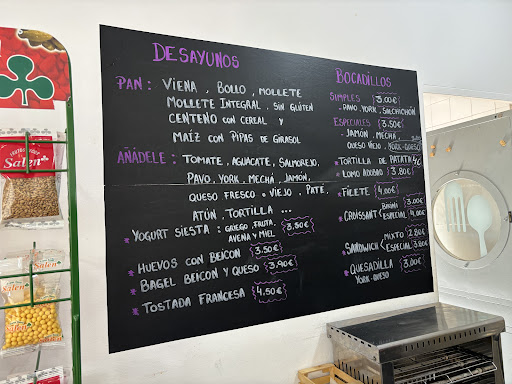 DESAYUNOS
PAN : VIENA , BOLLO , MOLLETE
MOLLETE INTEGRAL , SIN GLÚTEN
CENTENO CON CEREAL Y
MAÍZ CON PIPAS DE GIRASOL
AÑÁDELE : TOMATE, AGUACATE, SALMOREJO,
PAVO, YORK, MECHÁ, JAMÓN,
QUESO FRESCO o VIEJO , PATÉ,
ATÚN, TORTILLA ...
* YOGURT SIESTA : GRIEGO, FRUTA, AVENA Y MIEL. 3.50€
* HUEVOS CON BEICON 3.50€
* BAGEL BEICON Y QUESO 3,90€
* TOSTADA FRANCESA 4,50€
BOCADILLOS
SIMPLES 3.00€
- PAVO, YORK, SALCHICHÓN
ESPECIALES 3.50€
- JAMÓN, MECHÁ,
QUESO VIEJO, YORK-QUESO
* TORTILLA DE PATATA 4€
* LOMO ADOBAO 3.80€
* FILETE 4,00€
* CROISSANT BÁSICO 3.00€
ESPECIAL 4.00€
* SANDWICH MIXTO 2.80€
ESPECIAL 3.80€
* QUESADILLA 3,00€
YORK-QUESO
Salen
Salen
Salen